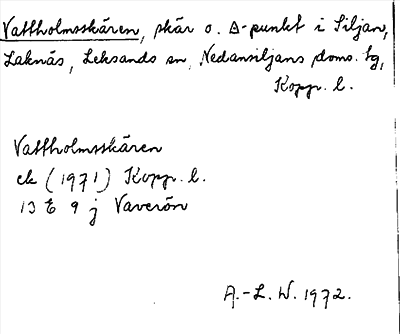 Vattholmsskären, skär o. Δ-punkt i Siljan,
Laknäs, Leksands sn, Nedansiljans doms. tg,
Kopp. l.
Vattholmsskären
ek (1971) Kopp. l.
13 E 9 j Vaverön
A.-L. W. 1972.